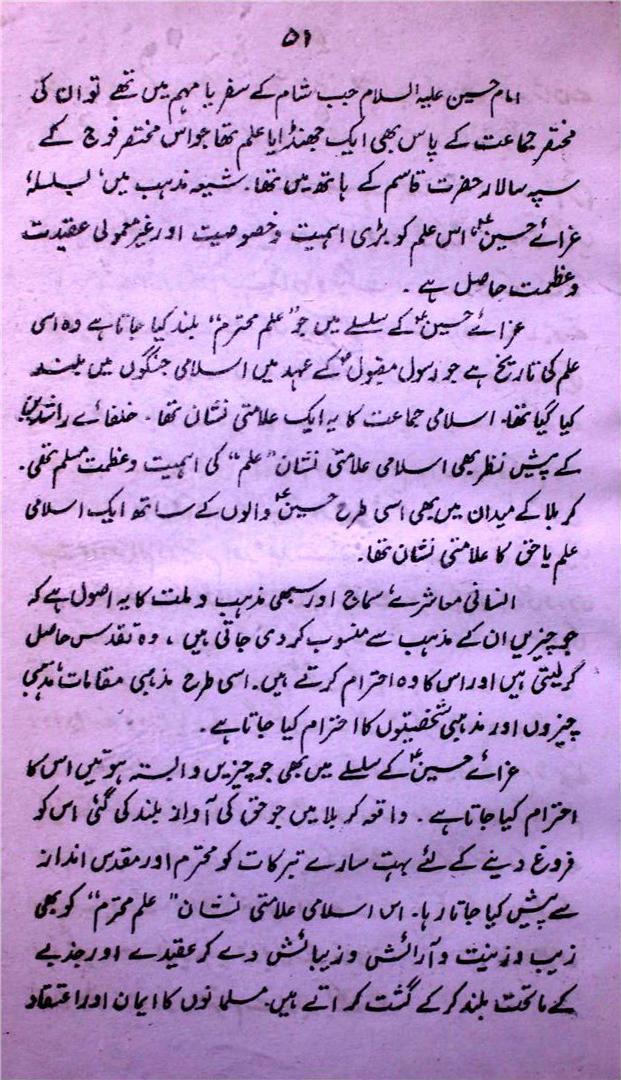 ۵۱
امام حسین علیہ السلام جب شام کے سفر یا مہم میں تھے تو ان کی
مختصر جماعت کے پاس بھی ایک جھنڈا یا علم تھا جو اس مختصر فوج کے
سپہ سالار حضرت قاسم کے ہاتھ میں تھا۔ شیعہ مذہب میں، بسلسلۂ
عزائے حسینؑ اس علم کو بڑی اہمیت و خصوصیت اور غیر معمولی عقیدت
و عظمت حاصل ہے ۔
عزائے حسینؑ کے سلسلے میں جو "علم محترم" بلند کیا جاتا ہے وہ اسی
علم کی تاریخ ہے جو رسول مقبولؐ کے عہد میں اسلامی جنگوں میں بلند
کیا گیا تھا۔ اسلامی جماعت کا یہ ایک علامتی نشان تھا ۔ خلفائے راشدین
کے پیش نظر بھی اسلامی علامتی نشان "علم" کی اہمیت و عظمت مسلم تھی۔
کربلا کے میدان میں بھی اسی طرح حسینؑ والوں کے ساتھ ایک اسلامی
علم یا حق کا علامتی نشان تھا۔
انسانی معاشرے، سماج اور سبھی مذہب و ملت کا یہ اصول ہے کہ
جو چیزیں ان کے مذہب سے منسوب کر دی جاتی ہیں ، وہ تقدس حاصل
کرلیتی ہیں اور اس کا وہ احترام کرتے ہیں۔ اسی طرح مذہبی مقامات، مذہبی
چیزوں اور مذہبی شخصیتوں کا احترام کیا جاتا ہے۔
عزائے حسینؑ کے سلسلے میں بھی جو چیزیں وابستہ ہوتیں اس کا
احترام کیا جاتا ہے ۔ واقعہ کربلا میں جو حق کی آواز بلند کی گئی اس کو
فروغ دینے کے لئے بہت سارے تبرکات کو محترم اور مقدس انداز
سے پیش کیا جاتا رہا۔ اس اسلامی علامتی نشان "علم محترم" کو بھی
زیب و زینت و آرائش و زیبائش دے کر عقیدے اور جذبے
کے ماتحت بلند کر کے گشت کراتے ہیں۔ مسلمانوں کا ایمان اور اعتقاد